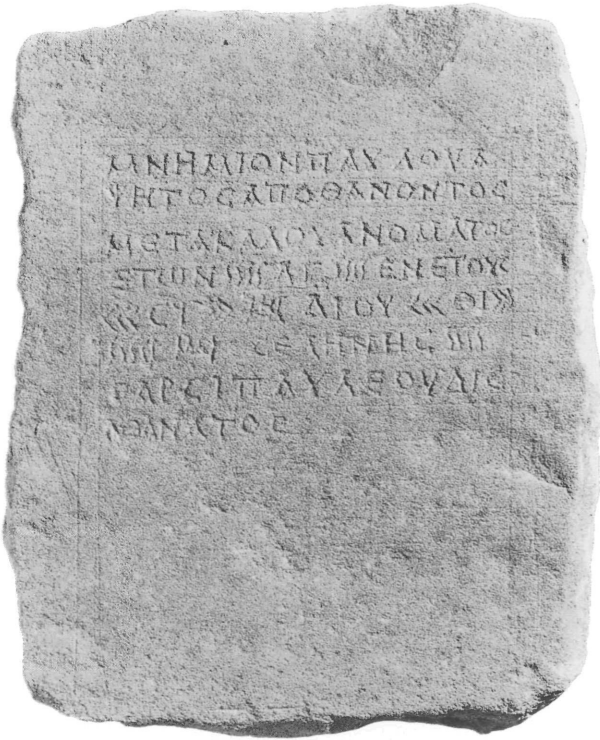 ΜΝΗΜΙΟΝΠΑΥΛΟΥΑ
ΨΗΤΟCΑΠΟΘΑΝΟΝΤΟC
ΜΕΤΑΚΑΛΟΥΑΝΟΜΑΤΟC
ΕΤΩΝ ΛΕ ΕΝΕΤΟΥC
ΔΙΟΥ ΘΙ
CΕΛΗΝΗC
ΘΑΡCΙΠΑΥΛΕΟΥΔΙC
ΑΘΑΝΑΤΟC